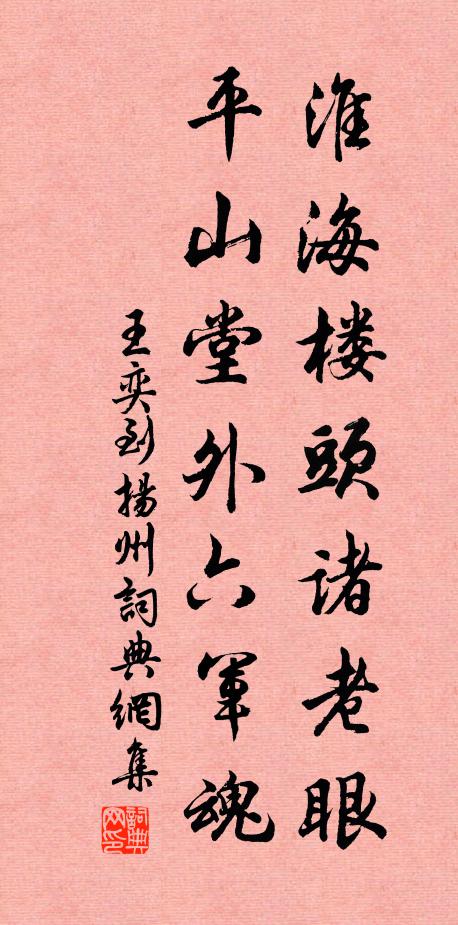 淮海楼頭诸老眼
平山堂外六军魂
王奕到揚州詞典網集
詞典网印